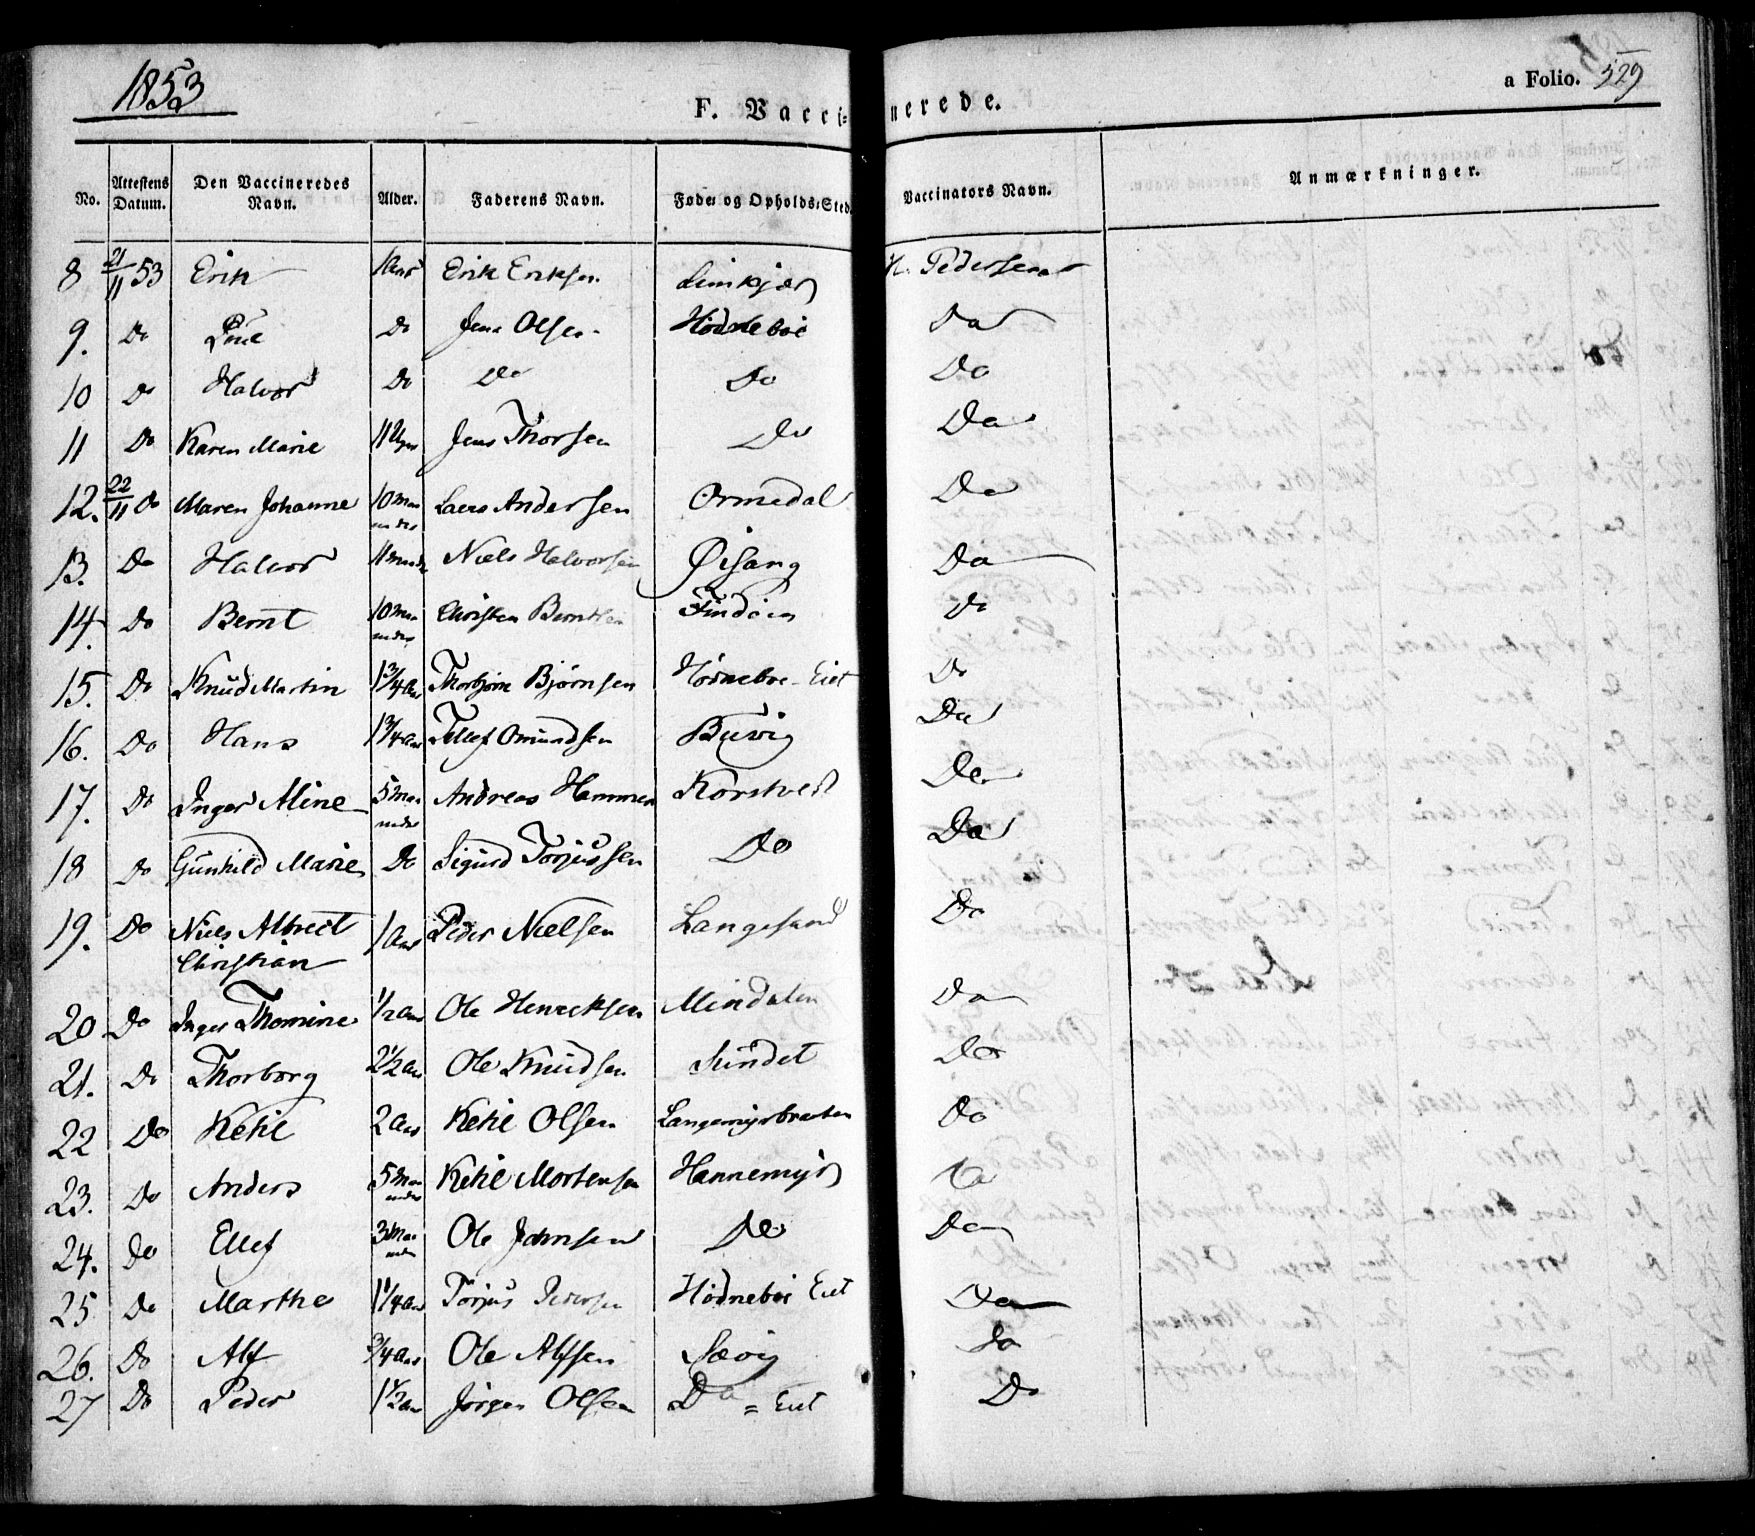 1853
a Folio. 529
F. Vaccinerede.
No. Attestens Datum. Den Vaccineredes Navn. Alder. Faderens Navn. Føde- og Opholds-Sted. Vaccinators Navn. Anmærkninger.
8 21/11 53 Erik 1 aar Erik Eriksen Pedersen
9. Do Do Jens Olsen Hødnebøe Do
10 Do Halvor Do Do Do Do
11 Do Karen Marie 11 Uger Jens Thorsen Do Do
12. 22/11 Do Maren Johanne 10 maaneder Laers Andersen Ormedal Do
13. Do Halvor 11 mnder Niels Halvorsen Øisang Do
14. Do Bernt 10 maaneder Christen Berntsen Findøen Do
15. Do Knud Martin 1 3/4 aar Thorbjørn Bjørnsen Hødneboe-Eiet Do
16. Do Hans 1 3/4 aar Tellef Omundsen Buvig Do
17. Do Inger Aline 5 maaneder Andreas Hammer Korstvedt Do
18 Do Gunhild Marie Do Sigurd Torjussen Do Do
19. Do Niels Albrect
Christian 1 aar Peder Nielsen Langesund Do
20 Do Inger Thomine 1/2 aar Ole Henricksen Mindalen Do
21. Do Thorborg 2 1/2 aar Ole Knudsen Sundet Do
22 Do Ketil 2 aar Ketil Olsen Langemyrbraaten Do
23. Do Anders 5 maaneder Ketil Mortensen Hannemyr Do
24. Do Ellef 3 maaneder Ole Johnsen Do Do
25 Do Marthe 1 1/4 aar Torjus Pedersen Hødneboe Eiet Do
26. Do Alf 3/4 aar Ole Alfsen Sævig Do
27 Do Peder 1 1/2 aar Jörgen Olsen Do = Eiet Do